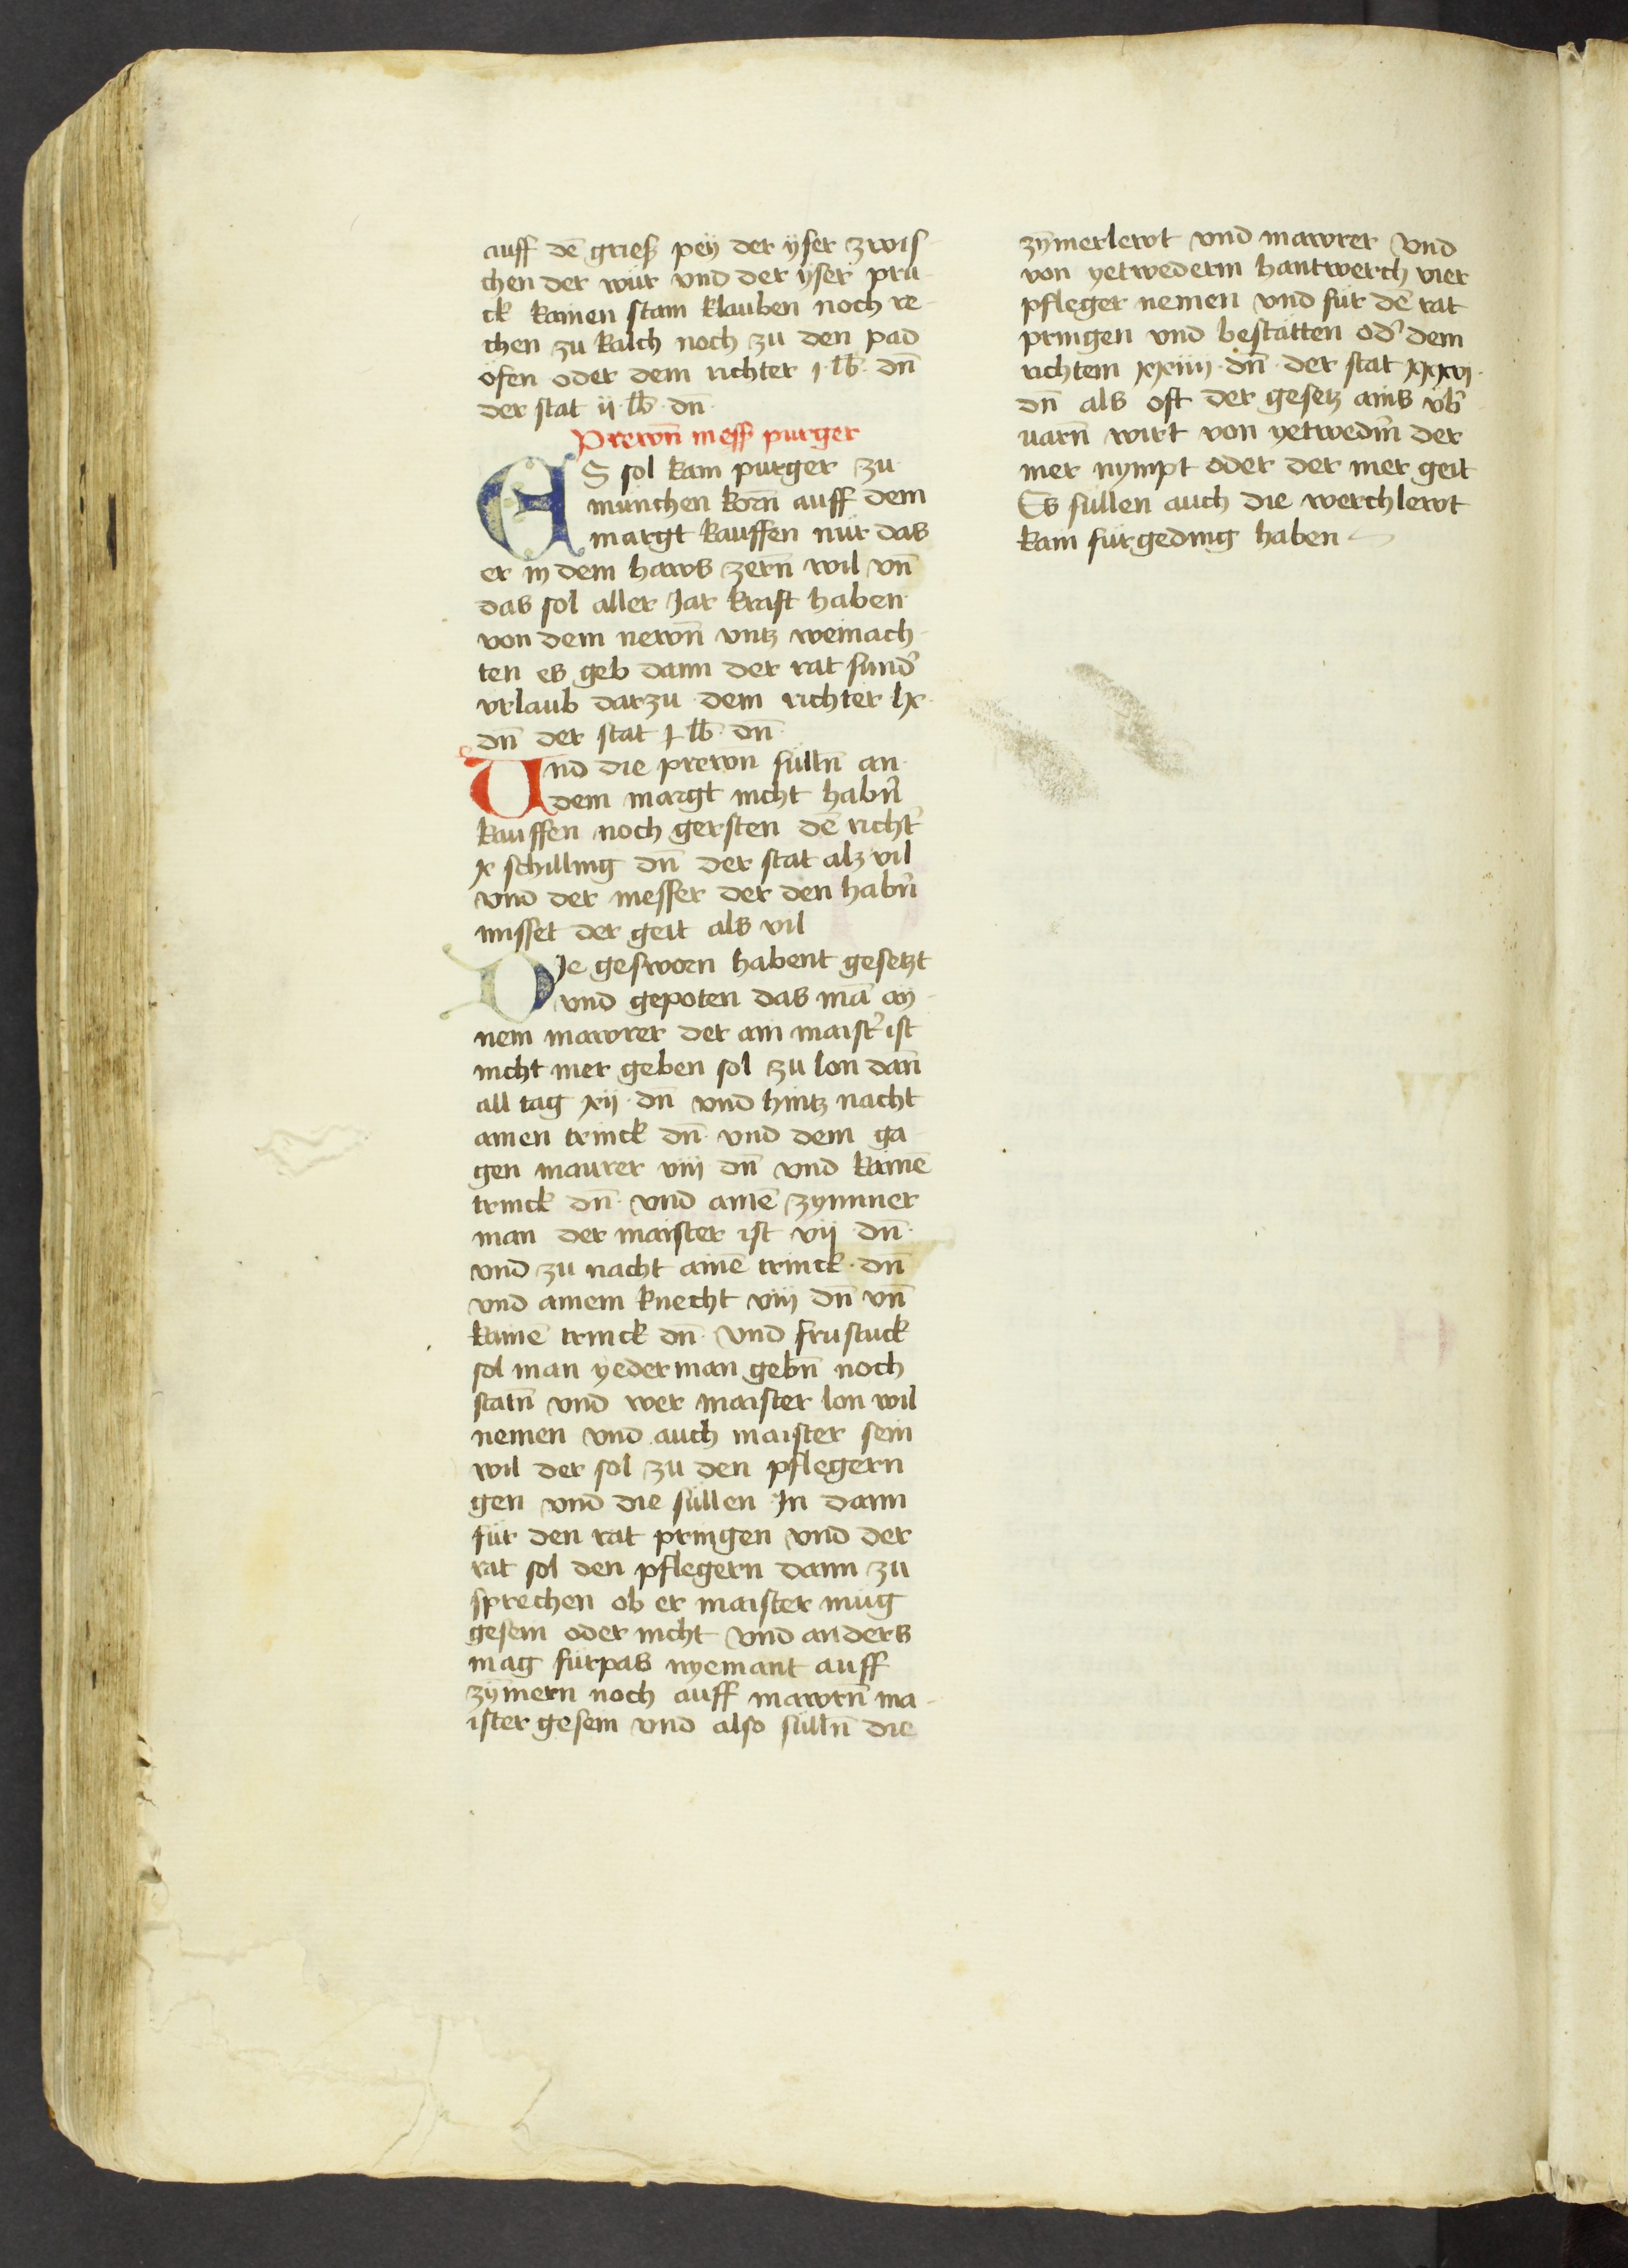 auff dē griess peÿ der ÿser zwis
chen der wür vnd der ÿser pru
ck kainen stain klauben noch re
chen zu kalch noch zu den pad
öfen oder dem richter j lb dn̄
der stat ij lb dn̄
Prewn̄ mess purger
ES sol kain purger zu
münchen korn̄ auff dem
margt kauffen nür das
er in dem haws zern̄ wil vn̄
das sol aller Jar kraft haben
von dem newn̄ vntz weinach
ten es geb dann der rat sund̛
vrlaub darzu dem richter lx
dn̄ der stat j lb dn̄
Vnd die prewn sülln̄ an
dem margt nicht habn̄
kauffen noch gersten dē richt̛
x schilling dn̄ der stat alz vil
vnd der messer der den habn̄
misset der geit als vil
DJe gesworn habent gesetzt
vnd gepoten das mā ay
nem mawrer der ain maist̛ ist
nicht mer geben sol zu lon dan̄
all tag xij dn̄ vnd hintz nacht
ainen trinck dn̄ vnd dem ga
gen maurer viij dn̄ vnd kainē
trinck dn̄ vnd ainē zymmer
man der maister ist vij dn̄
vnd zu nacht ainē trinck dn̄
vnd ainem knecht viij dn̄ vn̄
kainē trinck dn̄ vnd frustuck
sol man yederman gebn̄ noch
statn̄ vnd wer maister lon wil
nemen vnd auch maister sein
wil der sol zu den pflegern
gen vnd die süllen Jn dann
für den rat pringen vnd der
rat sol den pflegern dann zu
sprechen ob er maister mug
gesein oder nicht vnd anders
mag fürpas nyemant auff
zȳmern noch auff mawrn̄ ma
ister gesein vnd also sülln̄ die
zȳmerlewt vnd mawrer vnd
von yetwederm hantwerch vier
pfleger nemen vnd für dē rat
pringen vnd bestätten od̛ dem
richtern xxiiij dn̄ der stat xxxvj
dn̄ als oft der gesetz ains vb̛
uarn̄ wirt von yetwedm̄ der
mer nympt oder der mer geit
Es süllen auch die werchlewt
kain fürgeding haben